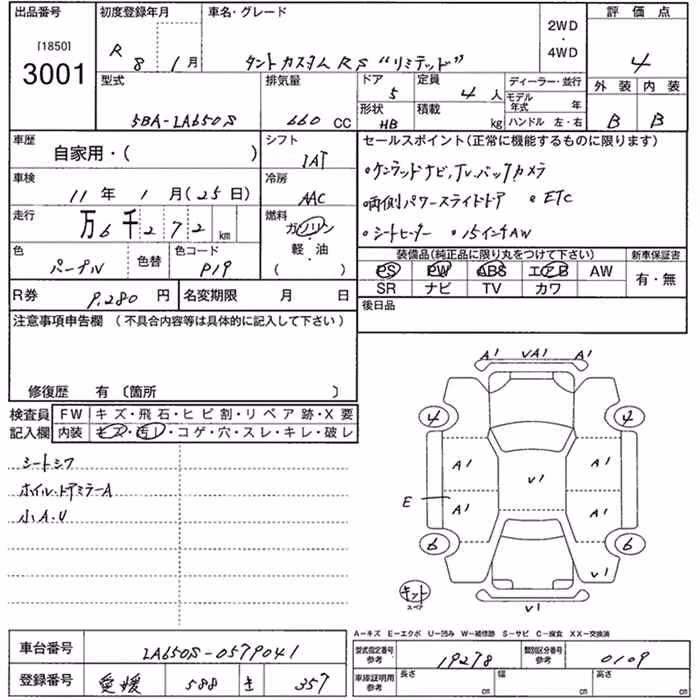 出品番号
[1850]
3001
初度登録年月
R 8 年 1 月
車名・グレード
タントカスタムRS "リミテッド"
2WD
・
4WD
評価点
4
外装 内装
B B
型式
5BA-LA650S
排気量
660 CC
ドア
5
定員
4 人
形状
HB
積載
kg
ディーラー・並行
モデル年式 年
ハンドル 左・右
車歴
自家用・( )
シフト
IAT
車検
11 年 1 月 (25 日)
冷房
AAC
走行
万 6 千 2 7 2 km
燃料
ガソリン
・
軽・油
( )
色
パープル
色替
色コード
P19
R券 9,280 円
名変期限 月 日
セールスポイント(正常に機能するものに限ります)
・ケンウッドナビ,Tv,バックカメラ
・両側パワースライドドア ・ETC
・シートヒーター ・15インチAW
装備品(純正品に限り丸をつけて下さい)
PS PW ABS エアB AW
SR ナビ TV カワ
新車保証書
有・無
後日品
注意事項申告欄 (不具合内容等は具体的に記入して下さい)
修復歴 有 〔箇所 〕
検査員記入欄
FW キズ・飛石・ヒビ割・リペア跡・X要
内装 キズ・汚レ・コゲ・穴・スレ・キレ・破レ
シートシワ
ホイル・ドアミラーA
小A・U
A1 VA1 A1
4 4
A1 A1
V1
E A1 A1
6 6
V1
キット
スペア
V1
A-キズ E-エクボ U-凹み W-補修跡 S-サビ C-腐食 XX-交換済
車台番号 LA650S-0579041
登録番号 愛媛 588 き 357
型式指定番号
参考
19278
類別区分番号
参考
0109
車庫証明用
参考
長さ cm
幅 cm
高さ cm